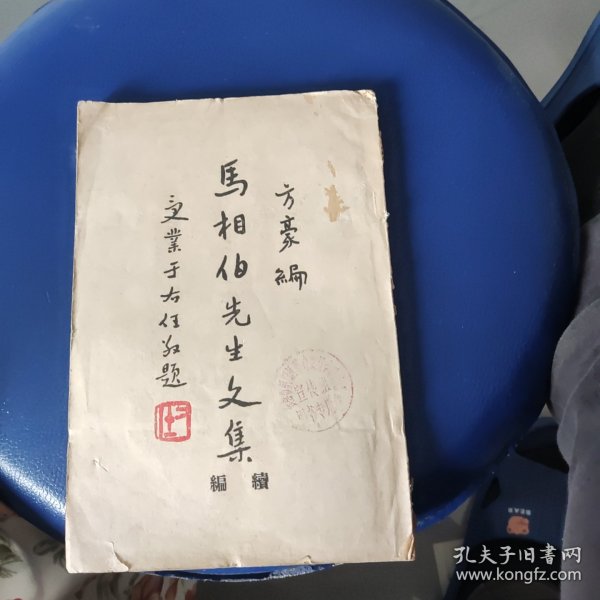 方豪編
馬相伯先生文集
續編
受業于右任敬題
孔夫子旧書网
www.kongfz.com